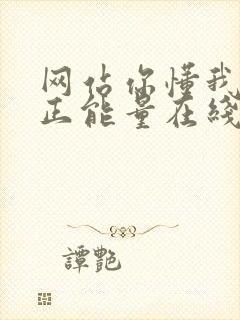 网站你懂我
正能量在线
譚艷